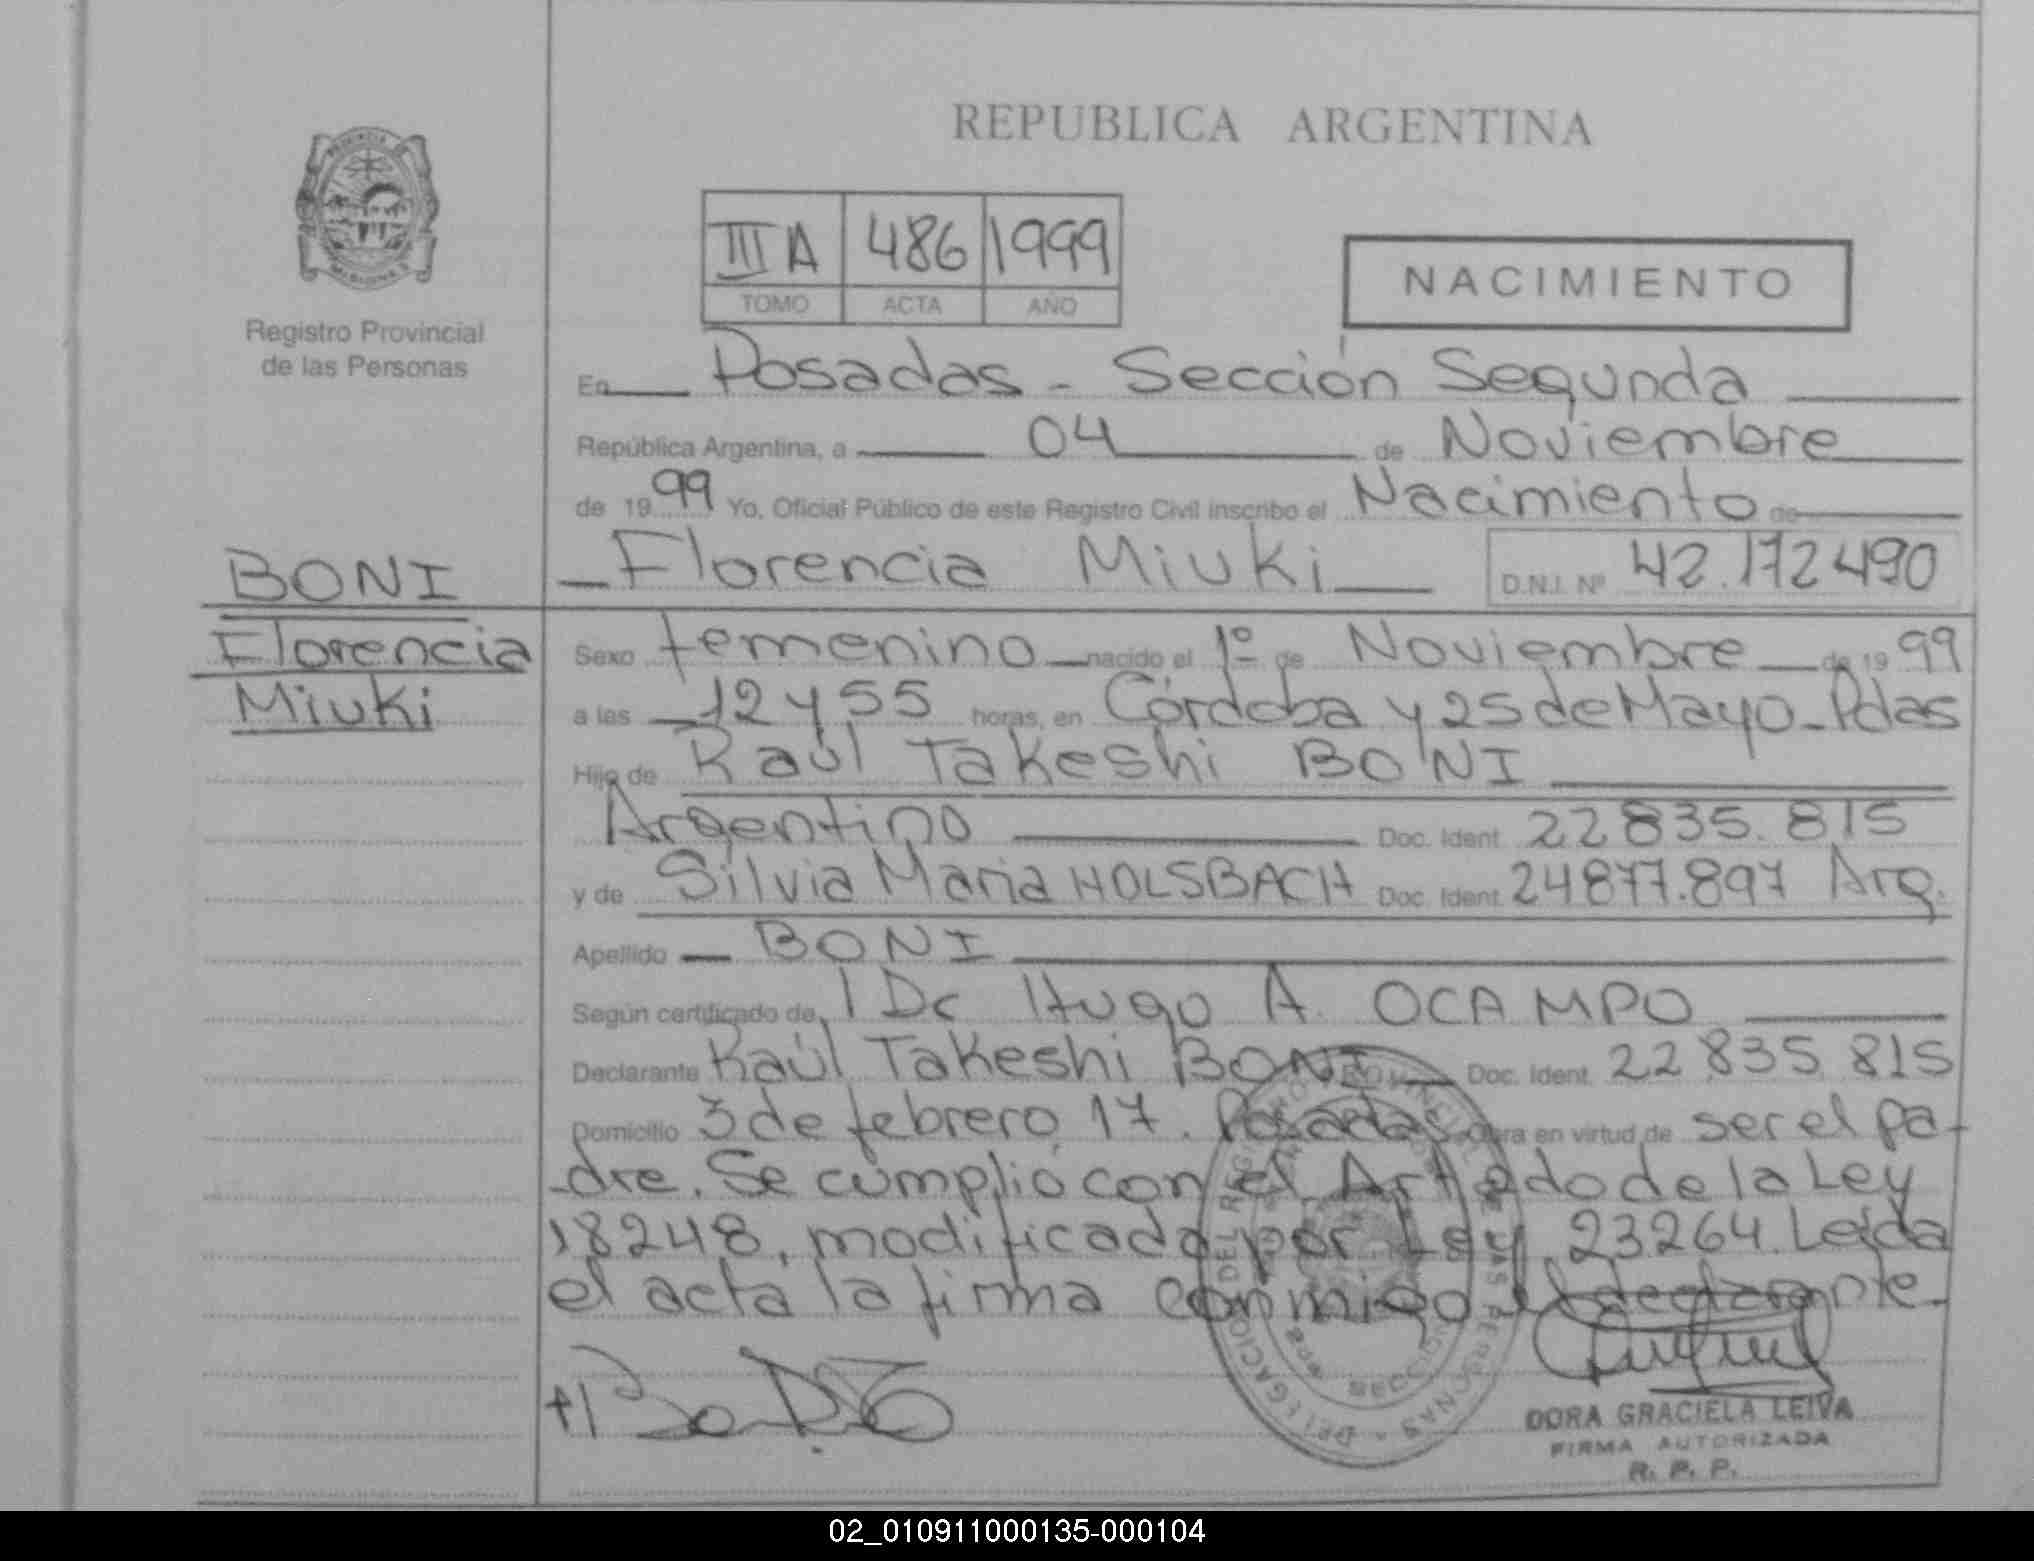 REPUBLICA ARGENTINA
PROVINCIA DE MISIONES
Registro Provincial
de las Personas
III A 486 1999
TOMO ACTA AÑO
NACIMIENTO
En Posadas - Sección Segunda
República Argentina, a 04 de Noviembre
de 1999 Yo, Oficial Público de este Registro Civil inscribo el Nacimiento de
Florencia Miuki D.N.I. Nº 42.172490
BONI
Florencia
Miuki
Sexo femenino nacido el 1º de Noviembre de 1999
a las 12 y 55 horas, en Córdoba y 25 de Mayo - Pdas
Hijo de Raúl Takeshi BONI
Argentino Doc. Ident. 22 835. 815
y de Silvia Maria HOLSBACH Doc. Ident. 24877.897 Arg.
Apellido BONI
Según certificado de Hugo A. OCAMPO
Declarante Raúl Takeshi BONI Doc. Ident. 22.835. 815
Domicilio 3 de febrero 17. Posadas Obra en virtud de ser el pa-
dre. Se cumplió con el Art 2do de la Ley
18248, modificada por Ley 23264. Leída
el acta la firma conmigo el declarante.
DELEGACION DEL REGISTRO PROVINCIAL DE LAS PERSONAS
MISIONES
DORA GRACIELA LEIVA
FIRMA AUTORIZADA
R. P. P.
02_010911000135-000104